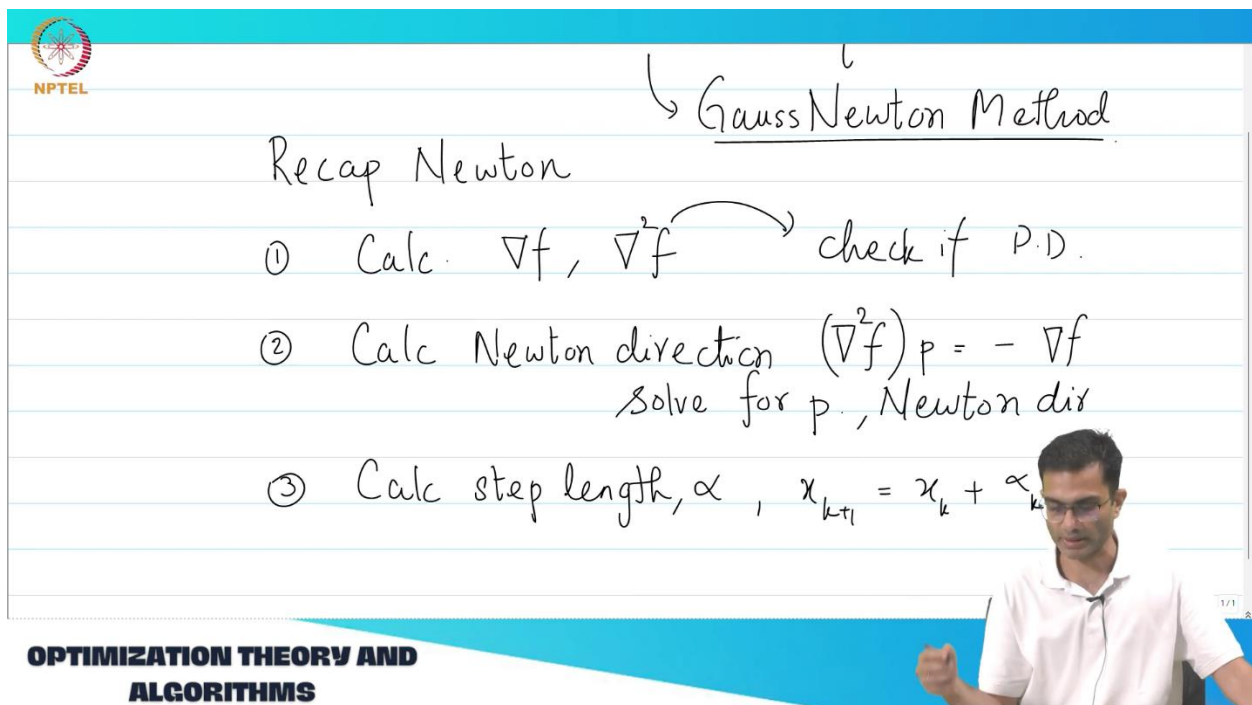 NPTEL
Gauss Newton Method
Recap Newton
① Calc. ∇f, ∇²f → check if P.D.
② Calc Newton direction (∇²f) p = - ∇f
solve for p., Newton dir
③ Calc step length, α , x_{k+1} = x_k + α_k
1/1
OPTIMIZATION THEORY AND
ALGORITHMS